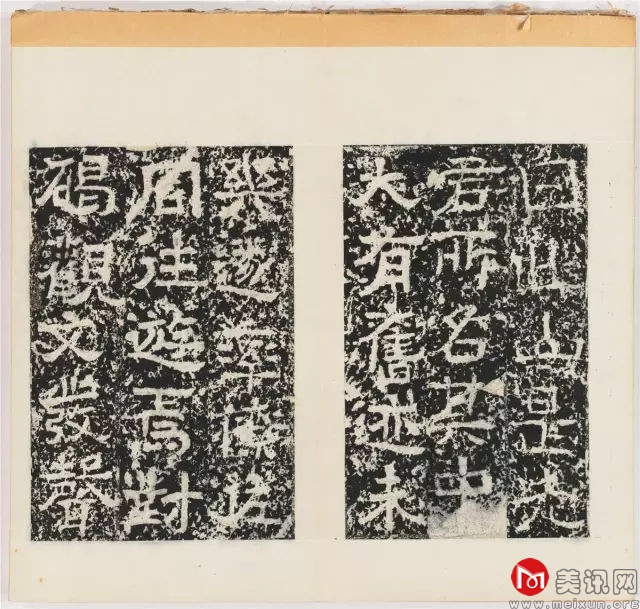 曰此山是先
君所名其中
大有舊迹未
幾遂率僚佐
同往遊焉對
碣觀文發聲
美讯网
www.meixun.org